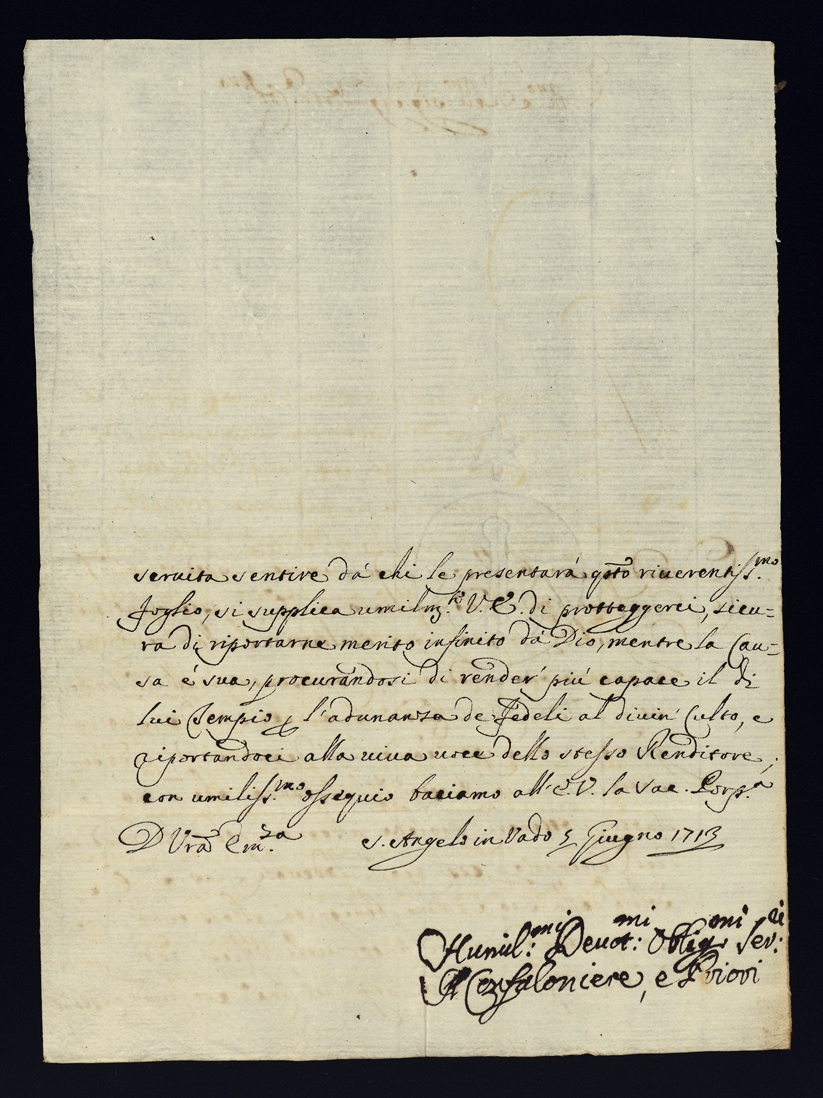 seruita sentire da chi le presentará qsto riuerentiss.mo
foglio, si supplica umilm.te V. E. di protteggerci, sicu=
ra di riportarne merito infinito da Dio, mentre la Cau=
sa é sua, procurandosi di render piú capace il di
lui Tempio p l'adunanza de Fedeli al divin Culto, e
riportandoci alla viva voce dello stesso Renditore,
con umiliss.mo ossequio baciamo all'E.V. la Sac. Porp.a
D Vra Em.za
S. Angelo in Vado 5 Giugno 1713
Humil.mi Deuot.mi Oblig.mi Ser.ri
Il Confaloniere, e Priori